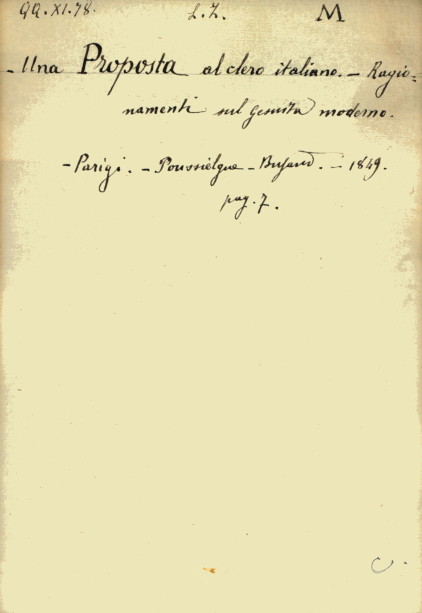 QQ. XI. 78. L. Z. M
- Una Proposta al clero italiano. - Ragio=
namenti sul Gesuita moderno.
- Parigi. - Poussielgue - Rusand. - 1849.
pag. 7.
C.